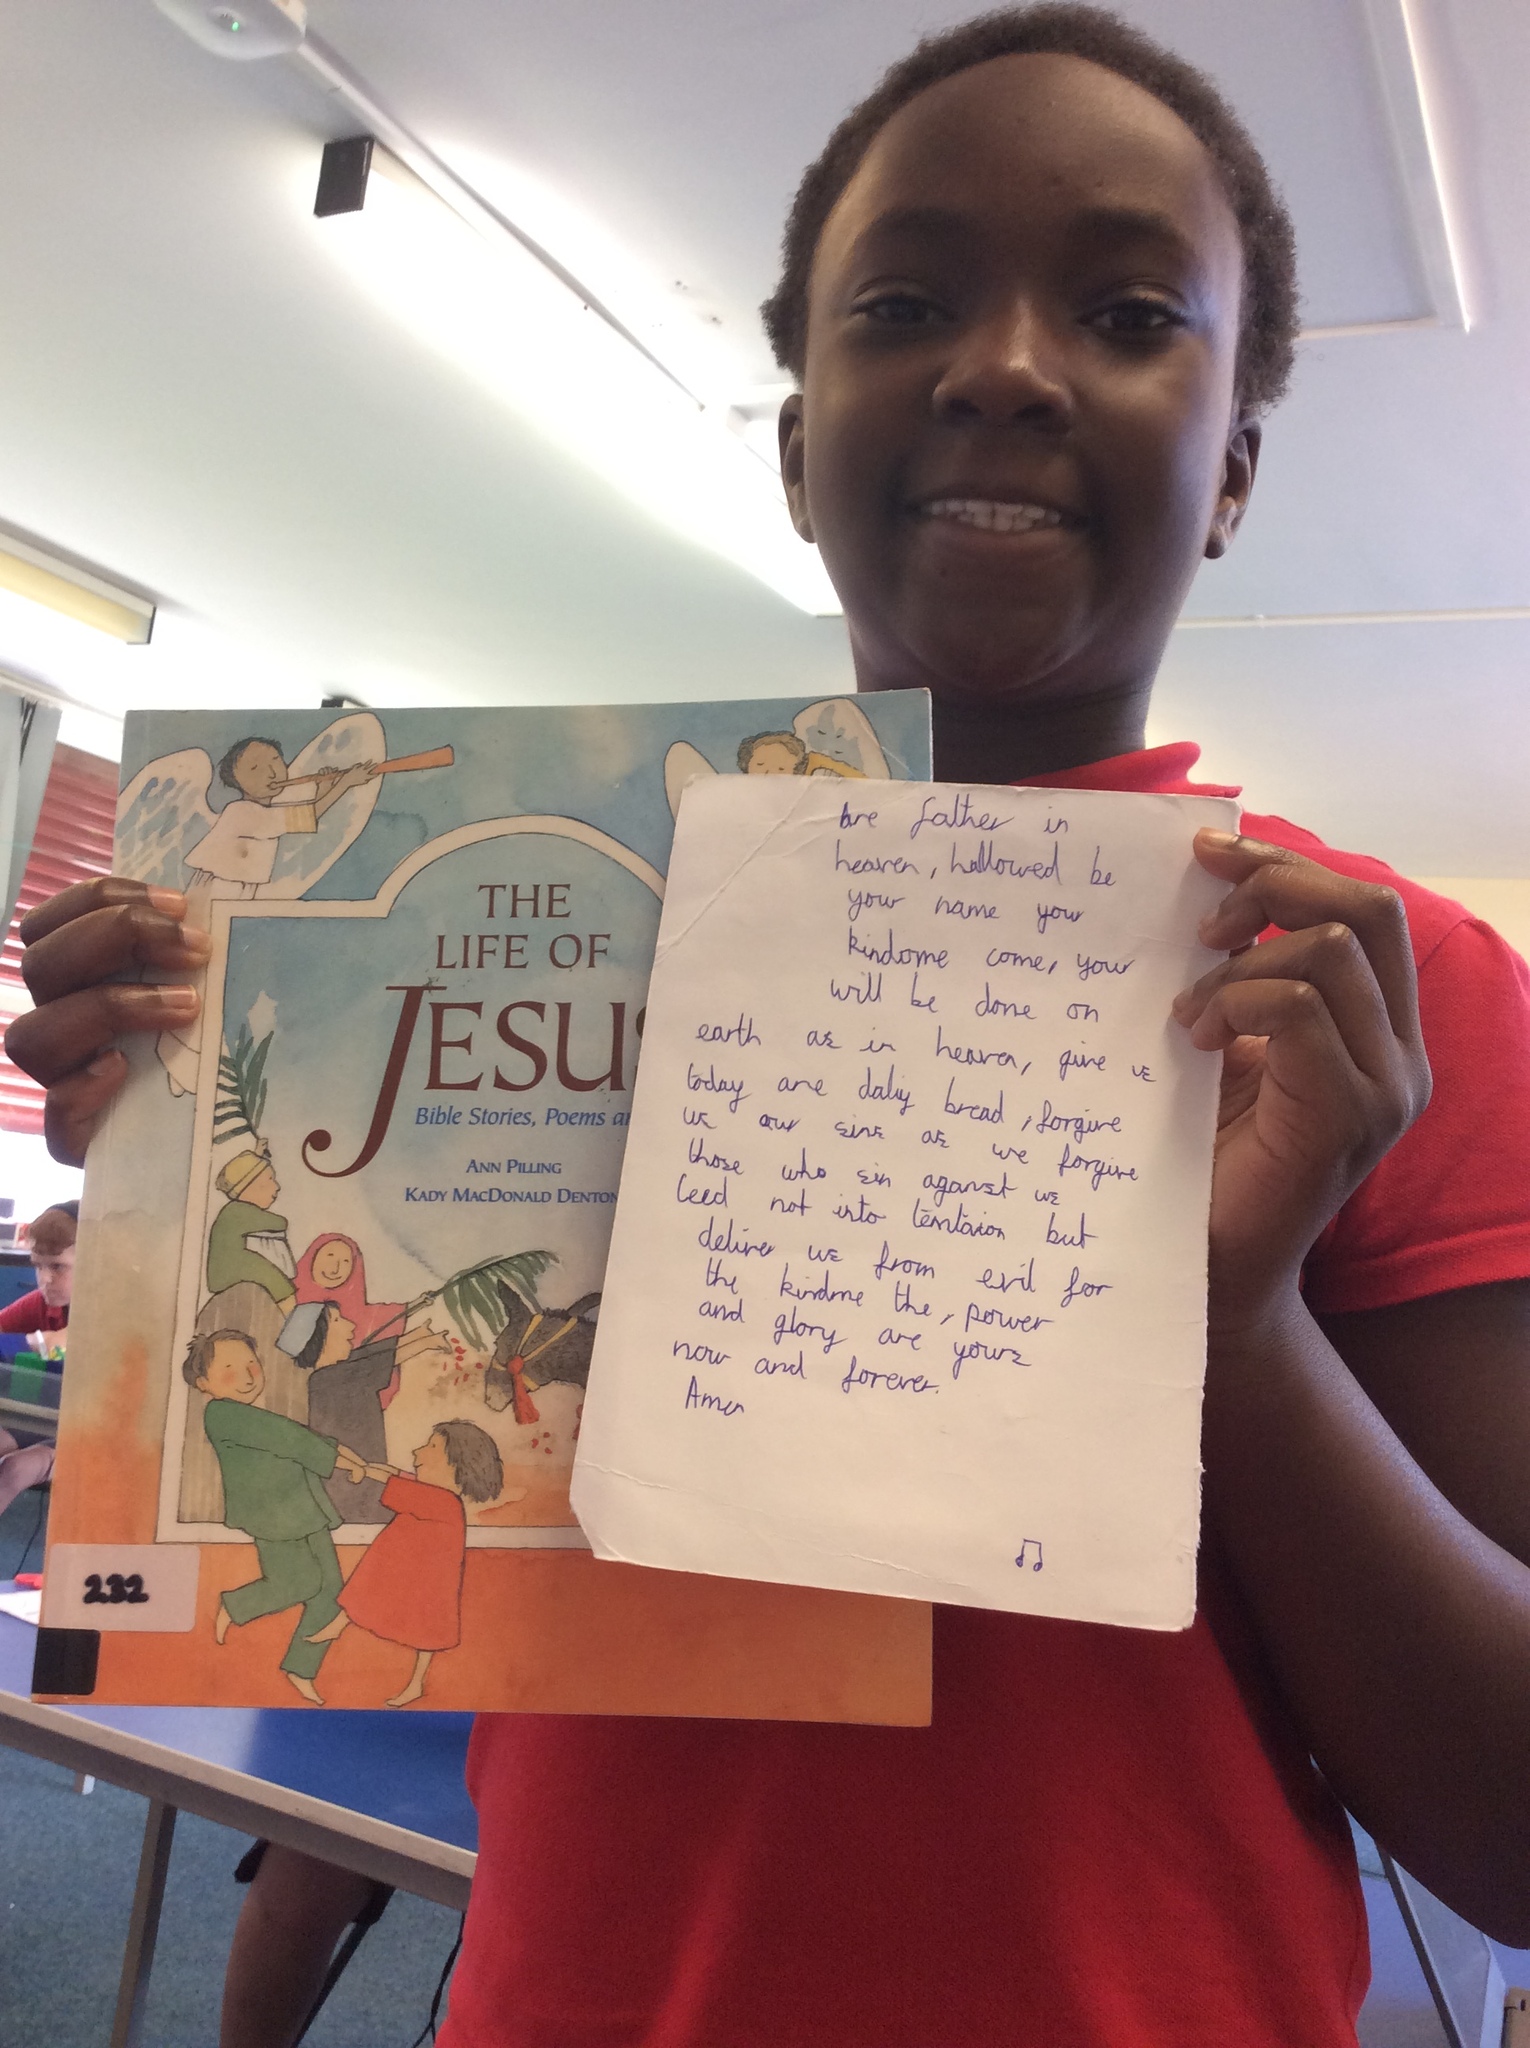 THE
LIFE OF
JESUS
Bible Stories, Poems
ANN PILLING
KADY MACDONALD DENTON
232
are father in
heaven, hallowed be
your name your
kindome come, your
will be done on
earth as in heaven, give us
today are daliy bread, forgive
us our sins as we forgive
those who sin aganst us
leed not into temtaion but
deliver us from evil for
the kindme the, power
and glory are yours
now and forever.
Amen